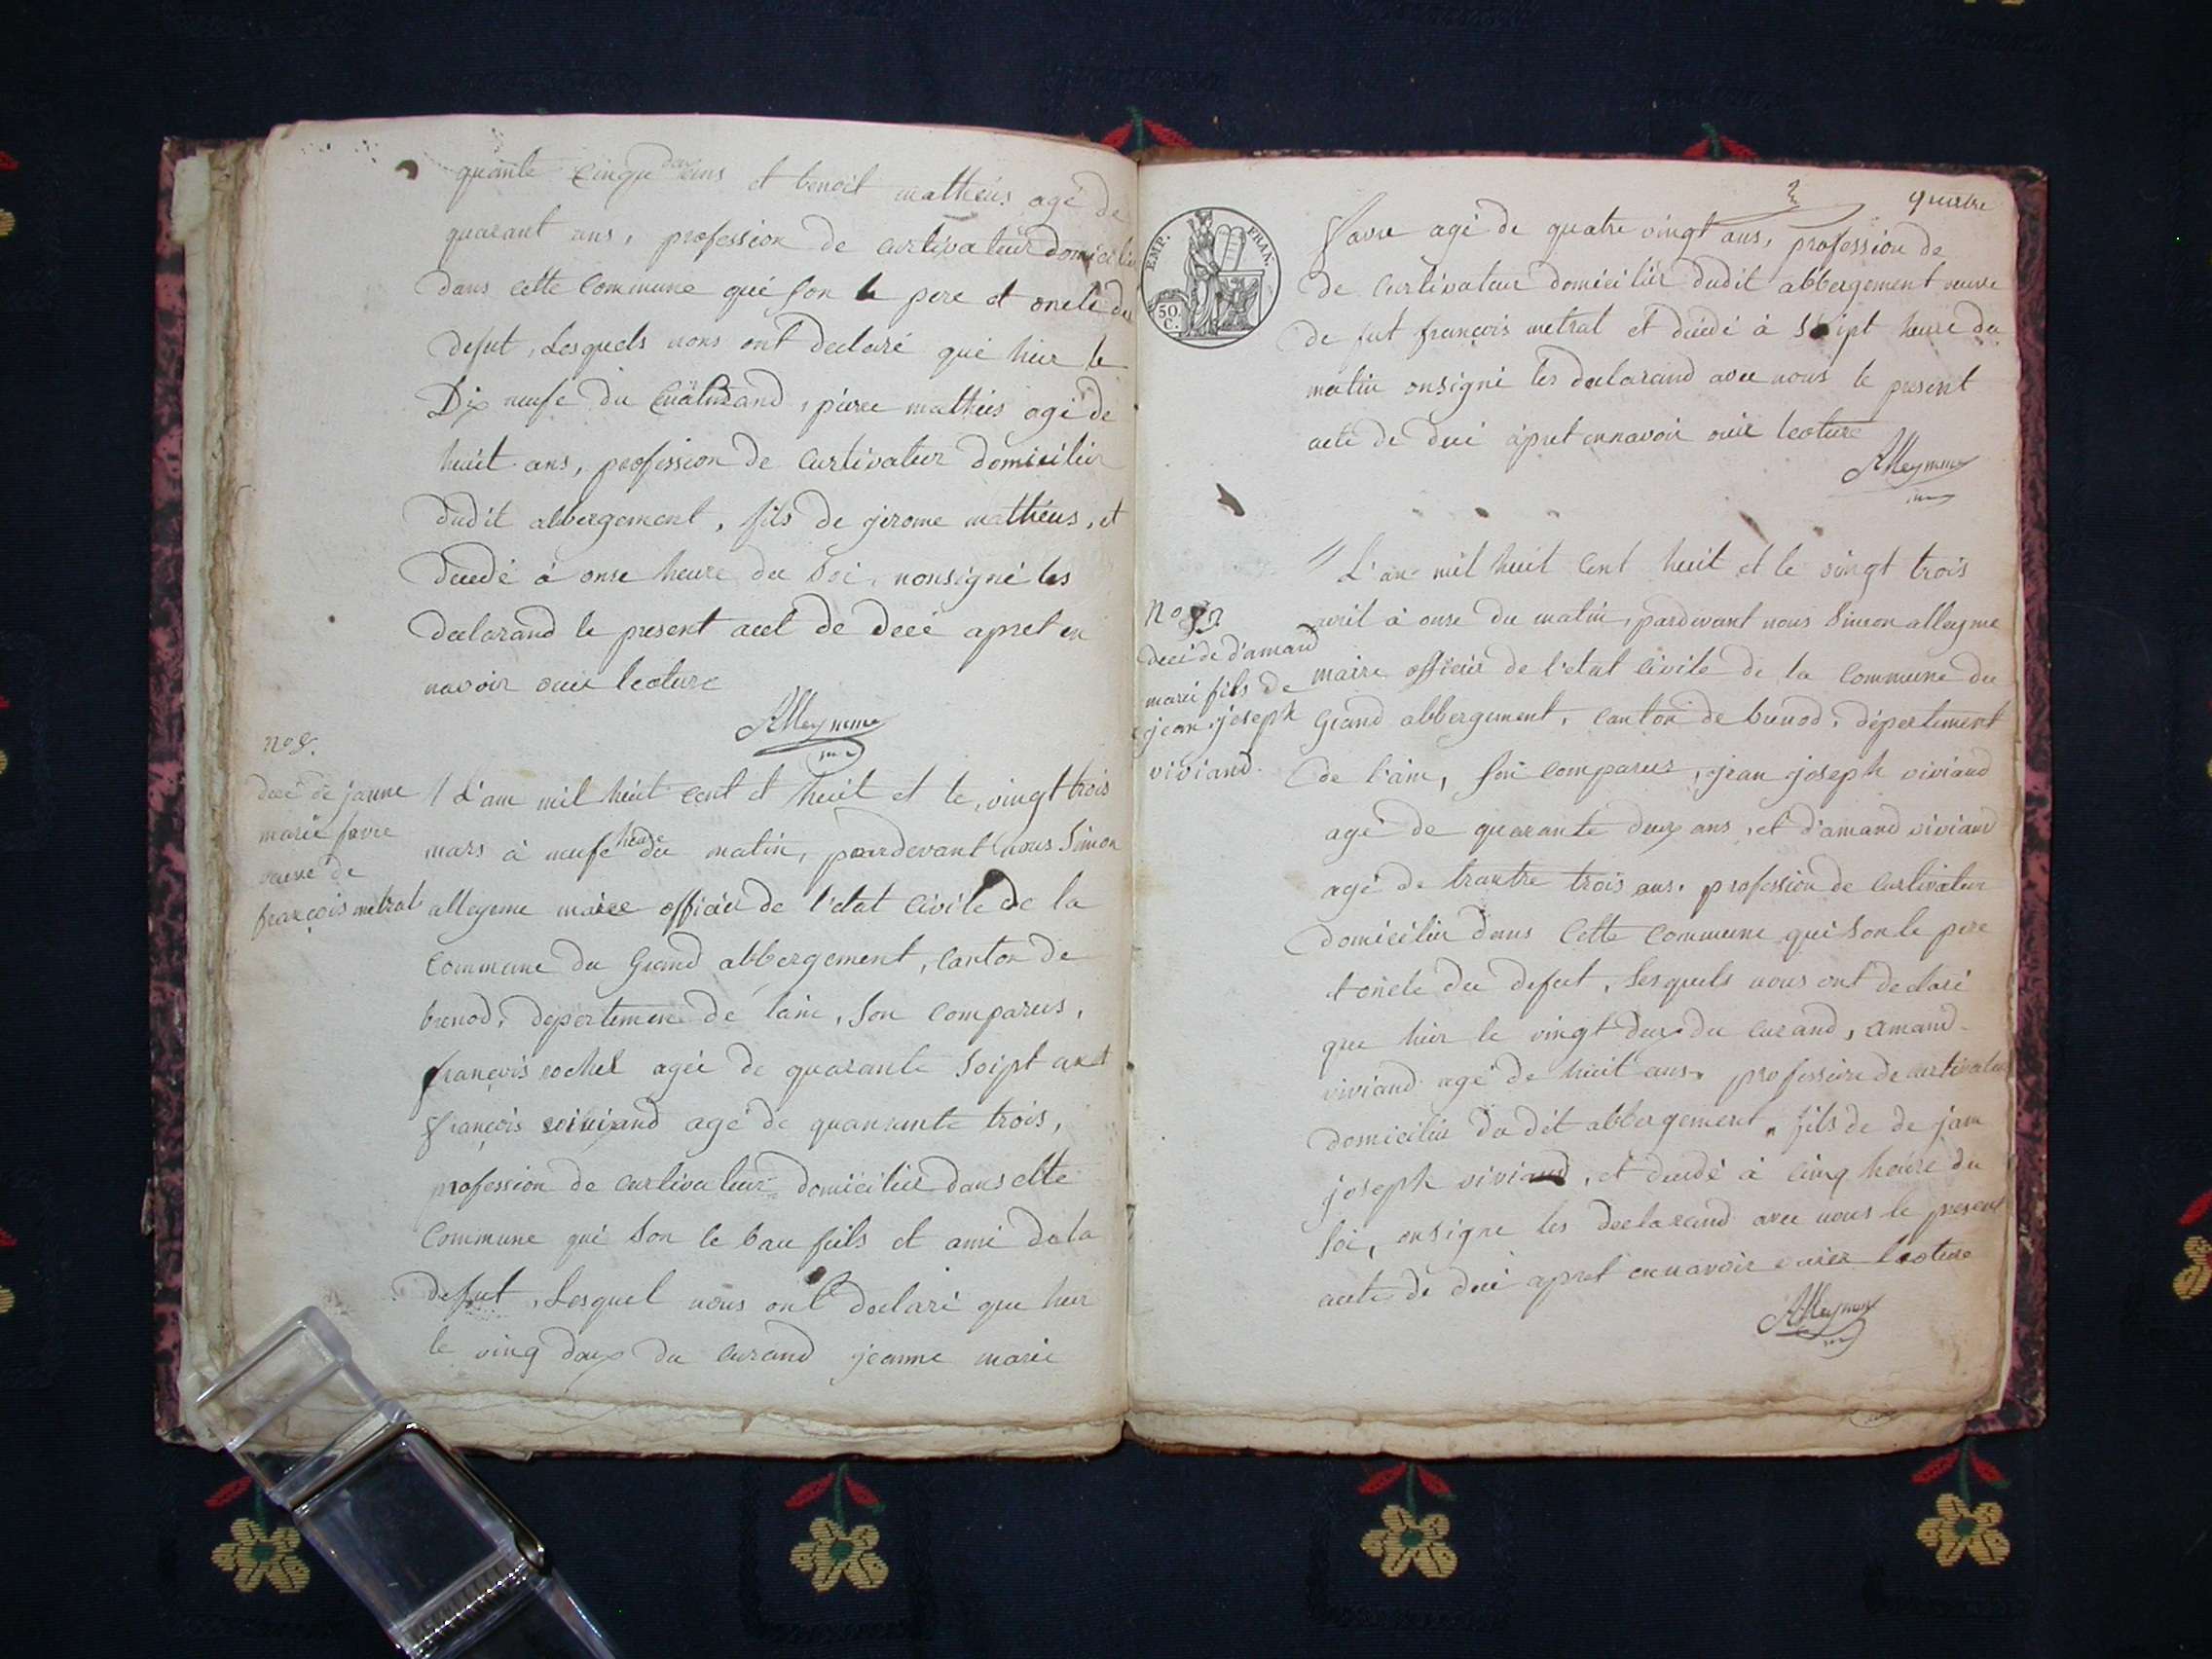 quante cinqu deux ans et benoit mathéus agé de
quarant ans, profession de curtivateur domicilie
dans cette commune qui son le pere et oncle du
defut, Lesquels nous ont declaré que hier le
Dix neufe du curand, pierre mathéus agé de
huit ans, profession de curtivateur domicilier
dudit abbergement, fils de jerome mathéus, et
deedé à onse heure du soi, nonsigné les
declarand le present acet de deeé apret en
navoir ouir lecture
Alleymme
no 8.
deeé de janne
marie favre
veuve de
françois metral
L'am mil huit cent et huit et le vingt trois
mars à neufe heure du matin, pardevant nous Simon
alleyeme maire officiér de l'etat civile de la
commune du Grand abbergement, canton de
brenod, departement de lain, son comparus,
françois rochel ageé de quarante soipt an et
françois viviand agé de quanrante trois,
profession de curtivateur domicilier dans ette
commune qui son le bau fiils et ami de la
defut, Lesquel nous ont declaré que hier
le ving doux du curand jeanne marie
quatre
EMP. FRAN.
50. C.
favre agé de quatre vingt ans, profession de
de curtivateur domicilier dudit abbergement veuve
de fut françois metral et déédé à soipt heure du
matin onsigné les declarand avec nous le present
acte de deei apret ennavoir ouir lecture
Alleymme
L'an mil huit cent huit et le vingt trois
avril à onse du matin, pardevant nous Simon alleyme
no 9.
deeé de d'amand
marie fils de
jean joseph
viviand.
maire officiér de l'etat civile de la commune du
Grand abbergement, canton de brenod, département
de l'ain, son comparus, jean joseph viviand
agé de quarante deux ans, et d'amand viviand
agé de trantre trois ans, profession de curtivateur
domicilier dans cette commune qui son le pere
et oncle du defut, Lesquels nous ont declaré
que hier le vingt deux du curand, amand
viviand agé de huit ans, professoire de curtivateur
domicilier du dit abbergement, fils de de jean
joseph viviand, et deedé à cinq heure du
soi, onsigne les declarand avec nous le present
acte de deei apret ennavoir ouir lecture
Alleymme